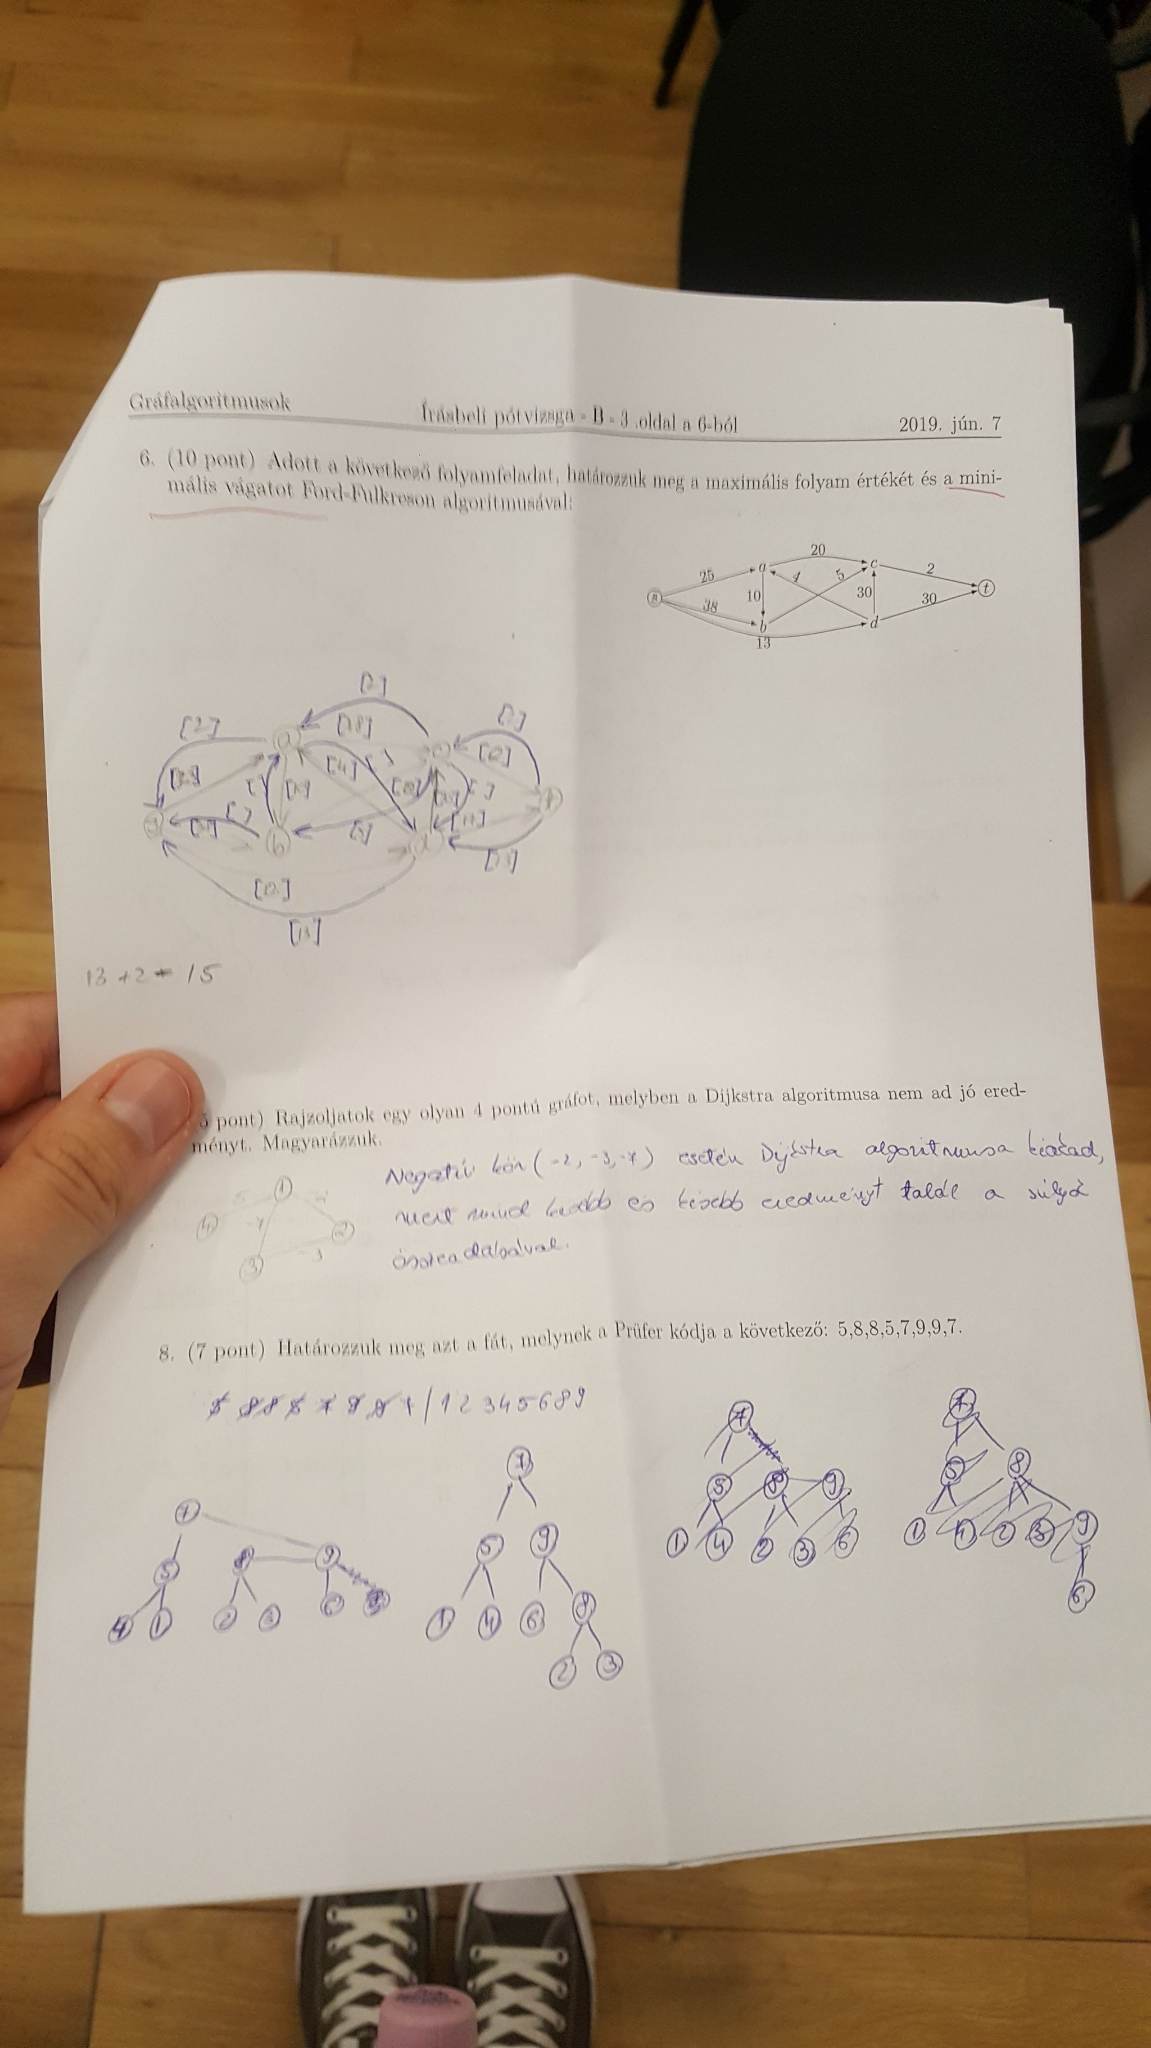 Gráfalgoritmusok Írásbeli pótvizsga - B - 3 .oldal a 6-ból 2019. jún. 7
6. (10 pont) Adott a következő folyamfeladat, határozzuk meg a maximális folyam értékét és a mini-
mális vágatot Ford-Fulkreson algoritmusával:
20
25 a c 2
s 4 5 t
38 10 30 30
b d
13
[2]
[2] [18]
[4]
13 + 2 = 15
5 pont) Rajzoljatok egy olyan 4 pontú gráfot, melyben a Dijkstra algoritmusa nem ad jó ered-
ményt. Magyarázzuk.
Negatív kör (-2, -3, -7) esetén Dijkstra algoritmusa kiakad,
mert mind kisebb és kisebb eredményt talál a súlyok
összeadásával.
5 1
4 2
3
8. (7 pont) Határozzuk meg azt a fát, melynek a Prüfer kódja a következő: 5,8,8,5,7,9,9,7.
5 8 8 5 7 9 9 7 | 1 2 3 4 5 6 8 9
7
5 8 9
4 1 2 3 6
7
5 9
1 4 6 8
2 3
7
5 8 9
1 4 2 3 6
7
5 8
1 4 2 3 9
6